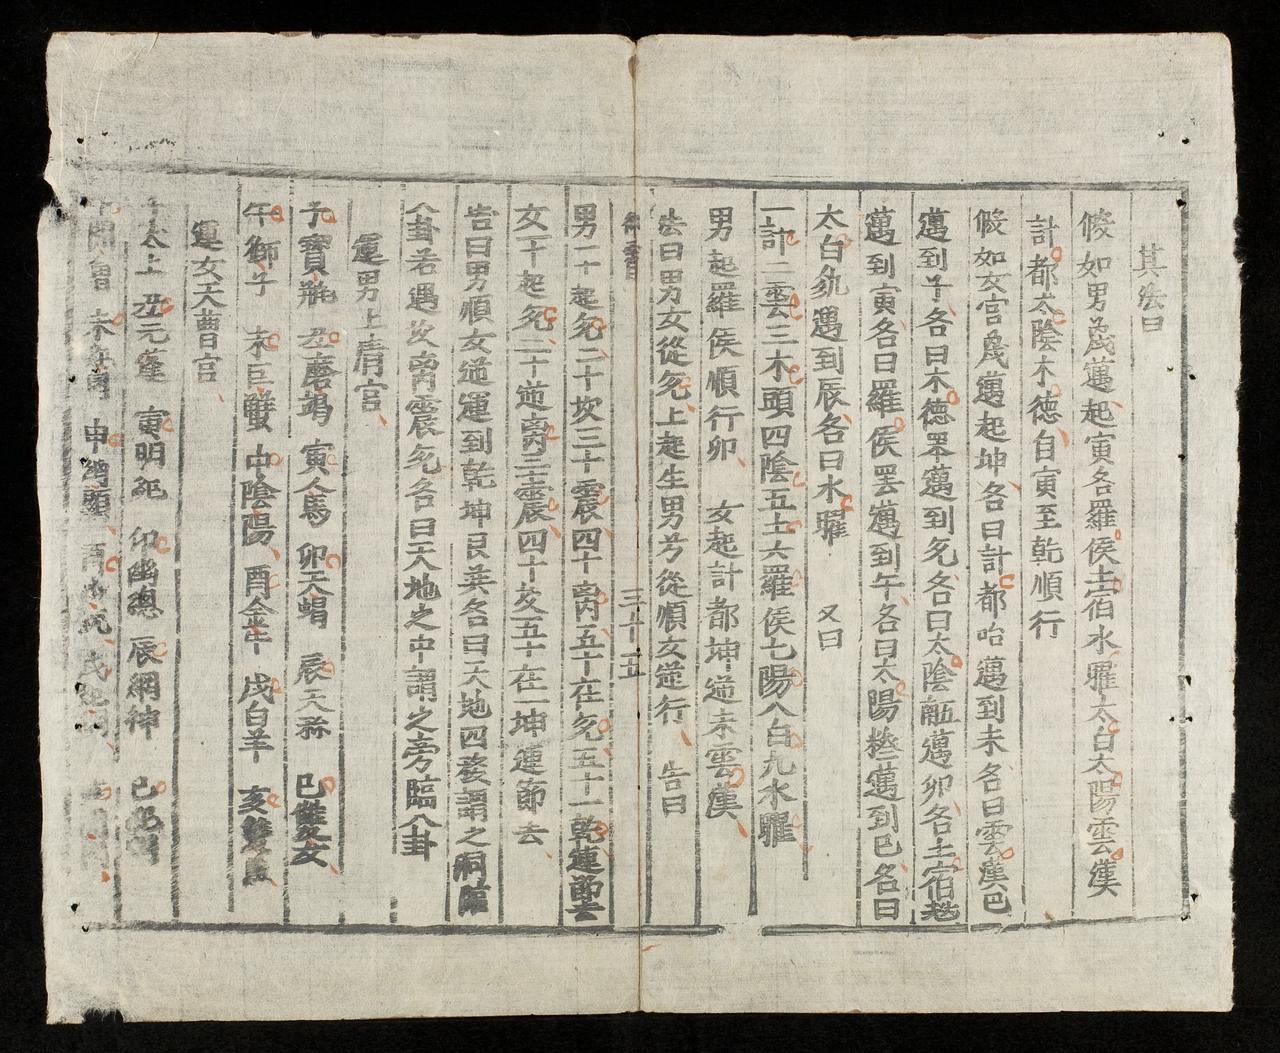 其法曰
假如男歲邁起寅各羅侯土宿水曜太白太陽雲漢
計都太陰木德自寅至乾順行
假如女宮歲邁起坤各曰計都哈邁到未各曰雲漢巴
邁到子各曰木德罙邁到兊各曰太陰邁卯各土宿
邁到寅各曰羅侯罢邁到午各曰太陽邁到巳各曰
太白邁到辰各曰水曜 又曰
一計二雲三木頭四陰五土六羅侯七陽八白九水曜
男起羅侯順行卯 女起計都坤逆未雲漢
法曰男女從兊上起生男兮從順女逆行 告曰
三十五
男一十起兊二十坎三十震四十离五十在兊五十一乾運節去
女一十起兊二十逆离三十震四十坎五十在一坤運節去
告曰男順女逆運到乾坤艮巽各曰天地四發謂之洞
八卦若遇坎离震兊各曰天地之中謂之旁臨八卦
運男上清宮
子寶瓶 丑磨竭 寅人馬 卯天蝎 辰天秤 巳雙女
午獅子 未巨蟹 申陰陽 酉金牛 戌白羊 亥雙魚
運女天曹宮
子太上 丑元蓬 寅明 卯幽 辰網神 巳
未 申 顯 酉 戌